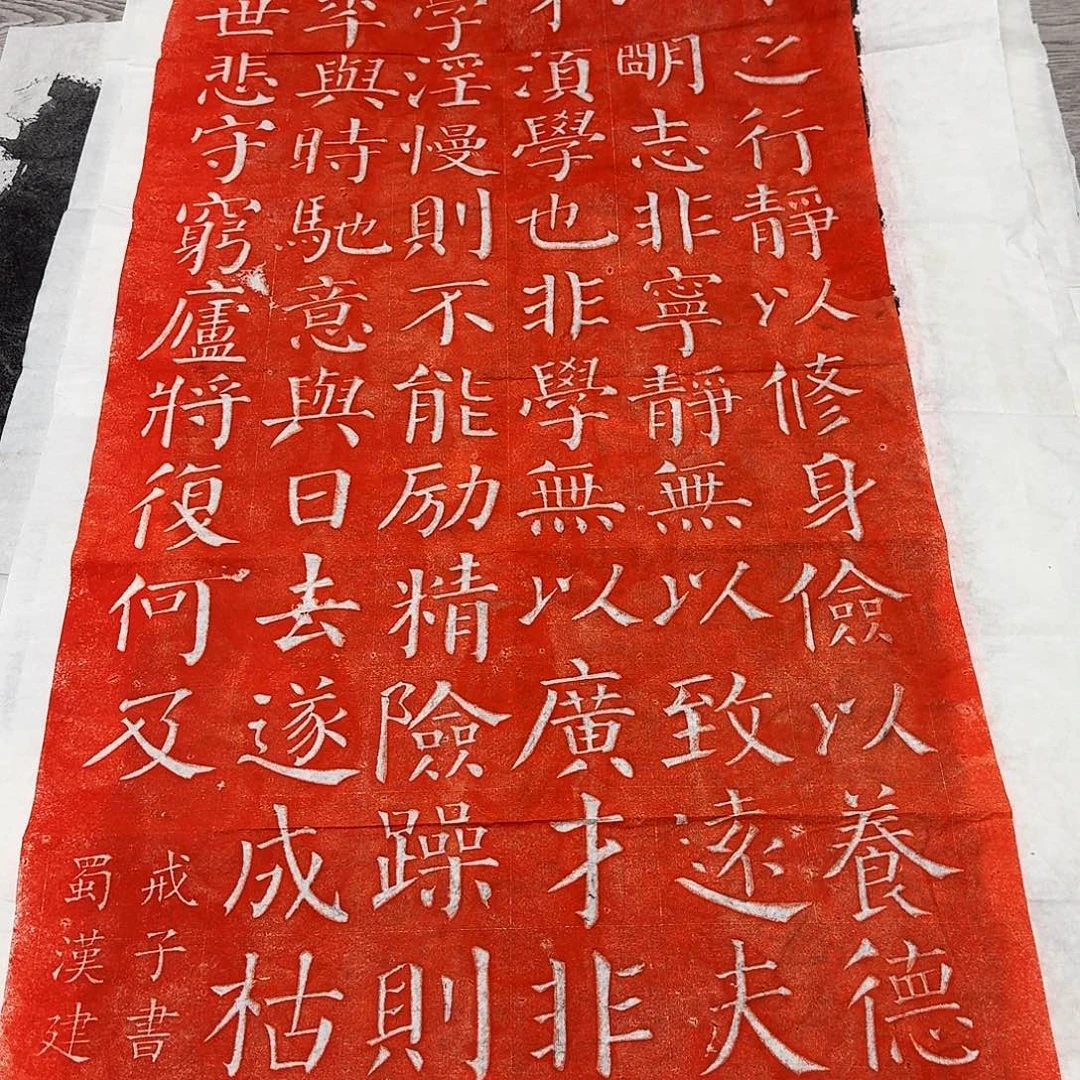 之行靜以修身儉以養德
明志非寧靜無以致遠夫
才湏學也非學無以廣才非
學淫慢則不能励精險躁則
年與時馳意與日去遂成枯
世悲守窮廬將復何及
戒子書
蜀漢建